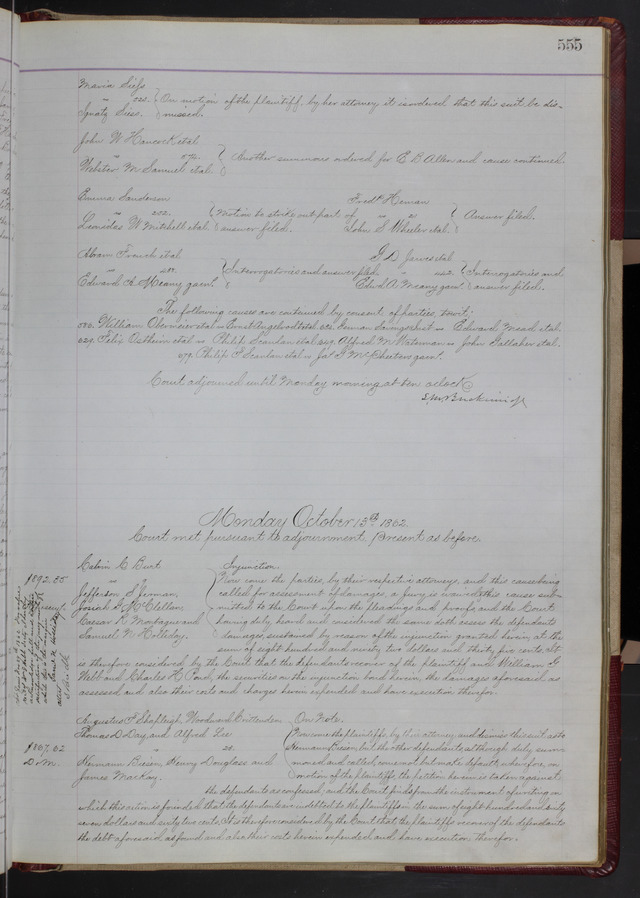 555
Maria Siess
" vs. On motion of the plaintiff, by her attorney it is ordered that this suit be dis-
Ignatz Siess. missed.
John W Hancock etal
" Another summons ordered for E B Allen and cause continued
Webster M Samuel etal.
Emma Sanderson Fredk Heman
" Motion to strike out part of " Answer filed.
Leonidas W Mitchell etal. answer filed. John S Wheeler etal.
Abram French etal G D Jarvis etal
" Interrogatories and answer filed. " Interrogatories and
Edward A Meany garn. Edwd A Meany garn. answer filed.
The following causes are continued by consent of parties, towit:
William Obermeier etal vs Ernst Angelrodt etal. Herman vs Edward Mead etal.
Felix etal vs Philip Scanlan etal. Alfred M Waterman vs John Gallaher etal.
Philip T Scanlan etal vs Jas G McPheeters garn.
Court adjourned until Monday morning at ten oclock
Monday October 13th 1862.
Court met pursuant to adjournment. Present as before.
Calvin C Burt Injunction.
" Now come the parties, by their respective attorneys, and this cause being
Jefferson S Yeoman, called for assessment of damages, a jury is waived & this cause sub-
Josiah G McClellan, mitted to the Court upon the pleadings and proofs, and the Court
Caesar R Montague and having duly heard and considered the same doth assess the defendants
Samuel N Holliday. damages, sustained by reason of the injunction granted herein, at the
sum of eight hundred and ninety two dollars and thirty five cents. It
is therefore considered by the Court that the defendants recover of the plaintiff and William G
Webb and Charles H Pond, the securities on the injunction bond herein, the damages aforesaid as
assessed and also their costs and charges herein expended and have execution therefor.
$892.35
Augustus F Shapleigh, Woodward Crittenden On Note.
Thomas D Day, and Alfred Lee Now come the plaintiffs, by their attorney and dismiss this suit as to
" vs. Hermann Biesen, but the other defendants although duly sum-
Hermann Biesen, Henry Douglass and moned and called, come not but make default; wherefore, on
James Mackay. motion of the plaintiffs, the petition herein is taken against
the defendants as confessed; and the Court finds from the instrument of writing on
which this action is founded that the defendants are indebted to the plaintiffs in the sum of eight hundred and sixty
seven dollars and sixty two cents. It is therefore considered by the Court that the plaintiffs recover of the defendants
the debt aforesaid as found and also their costs herein expended and have execution therefor.
$867.62